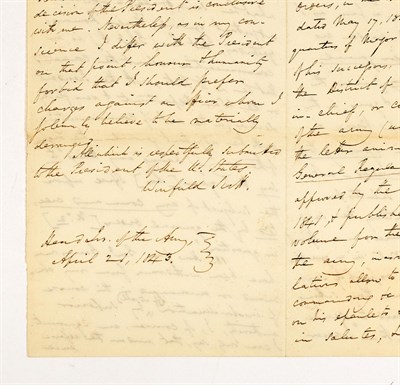 decision of the President is conclusive
with me. Nevertheless, as in my con-
science I differ with the President
on that point, honour & humanity
forbid that I should prefer
charges against an officer whom I
solemnly believe to be materially
deranged.
All which is respectfully submitted
to the President of the U. States.
Winfield Scott.
Head Qrs. of the Army,
April 2d, 1843.
orders, in
dated May 17, 18
quarters of Major
of his successors,
the District of
in-chief, or co
of the army (
the letter
General Regula
approved by the
1841, & publishe
volume for the
the army,
lations allow to
commanding
on his epaulets
in salutes, &